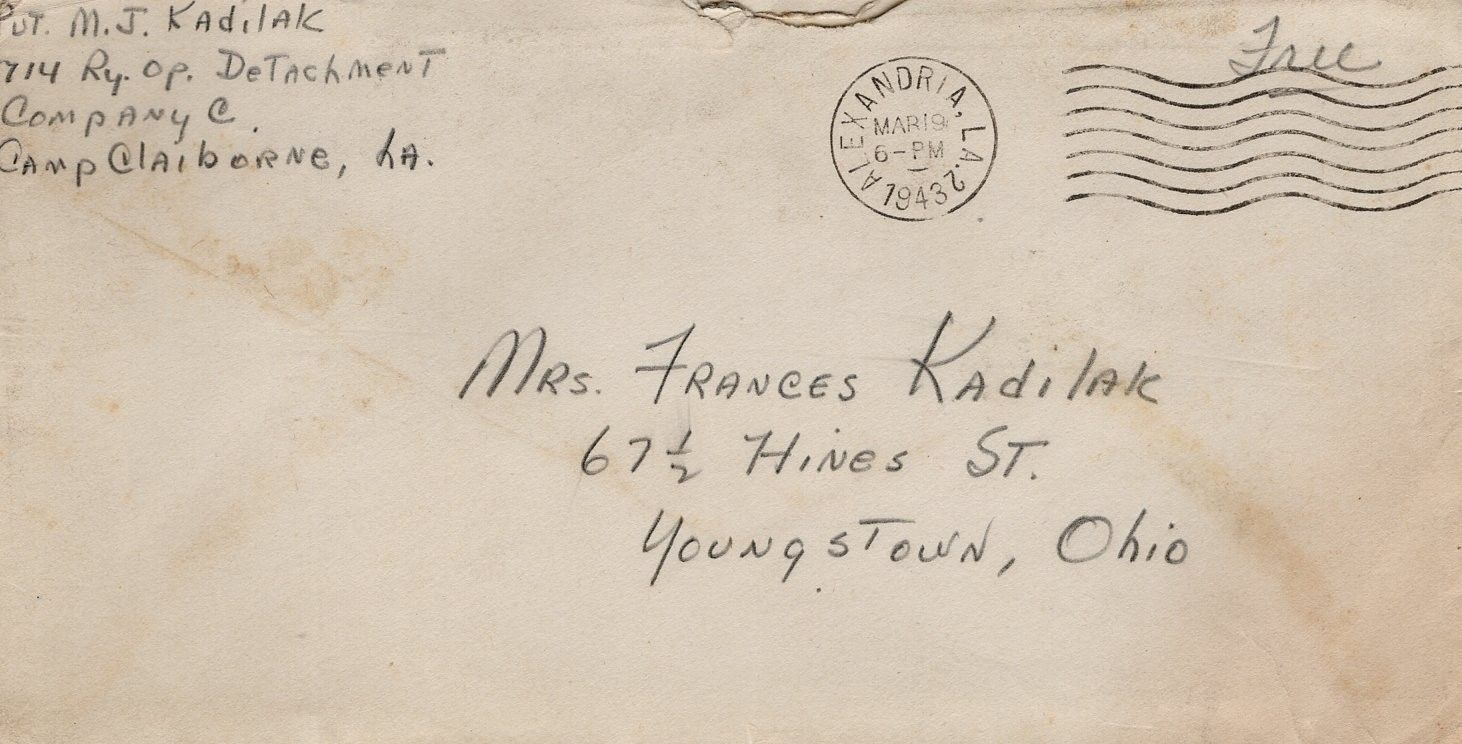 Pvt. M.J. Kadilak
714 Ry. Op. Detachment
Company C.
Camp Claiborne, La.
Free
ALEXANDRIA, LA. 2
MAR 19
6-PM
1943
Mrs. Frances Kadilak
67 1/2 Hines St.
Youngstown, Ohio